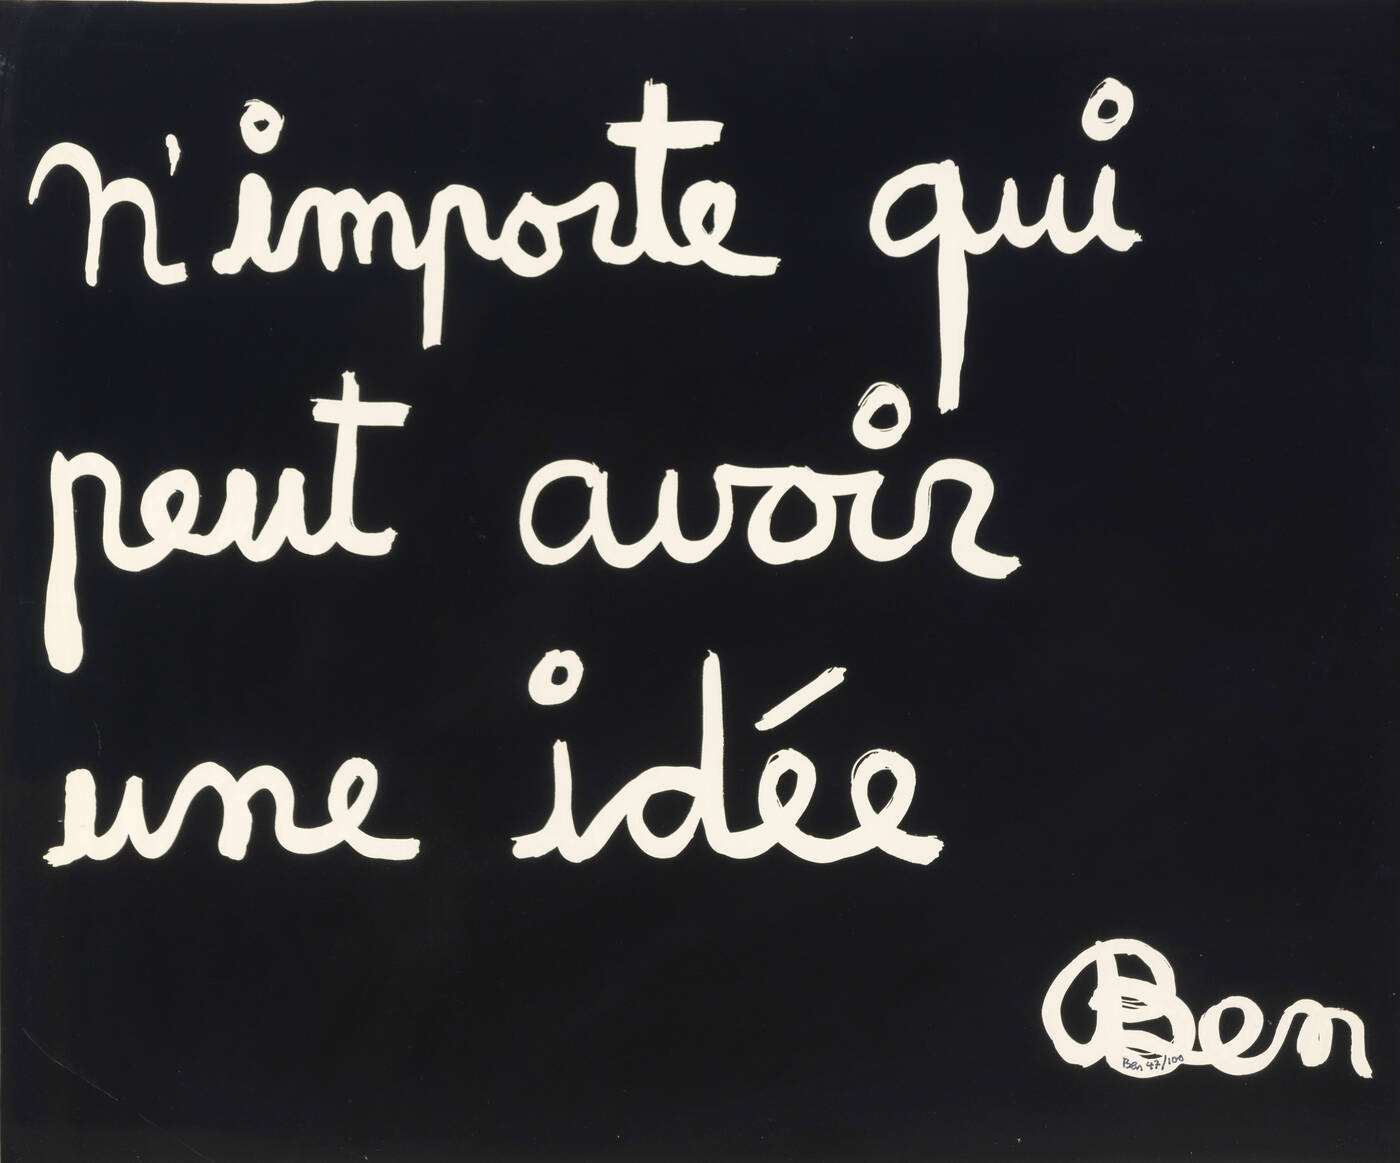 n'importe qui
peut avoir
une idée
Ben
Ben 47/100